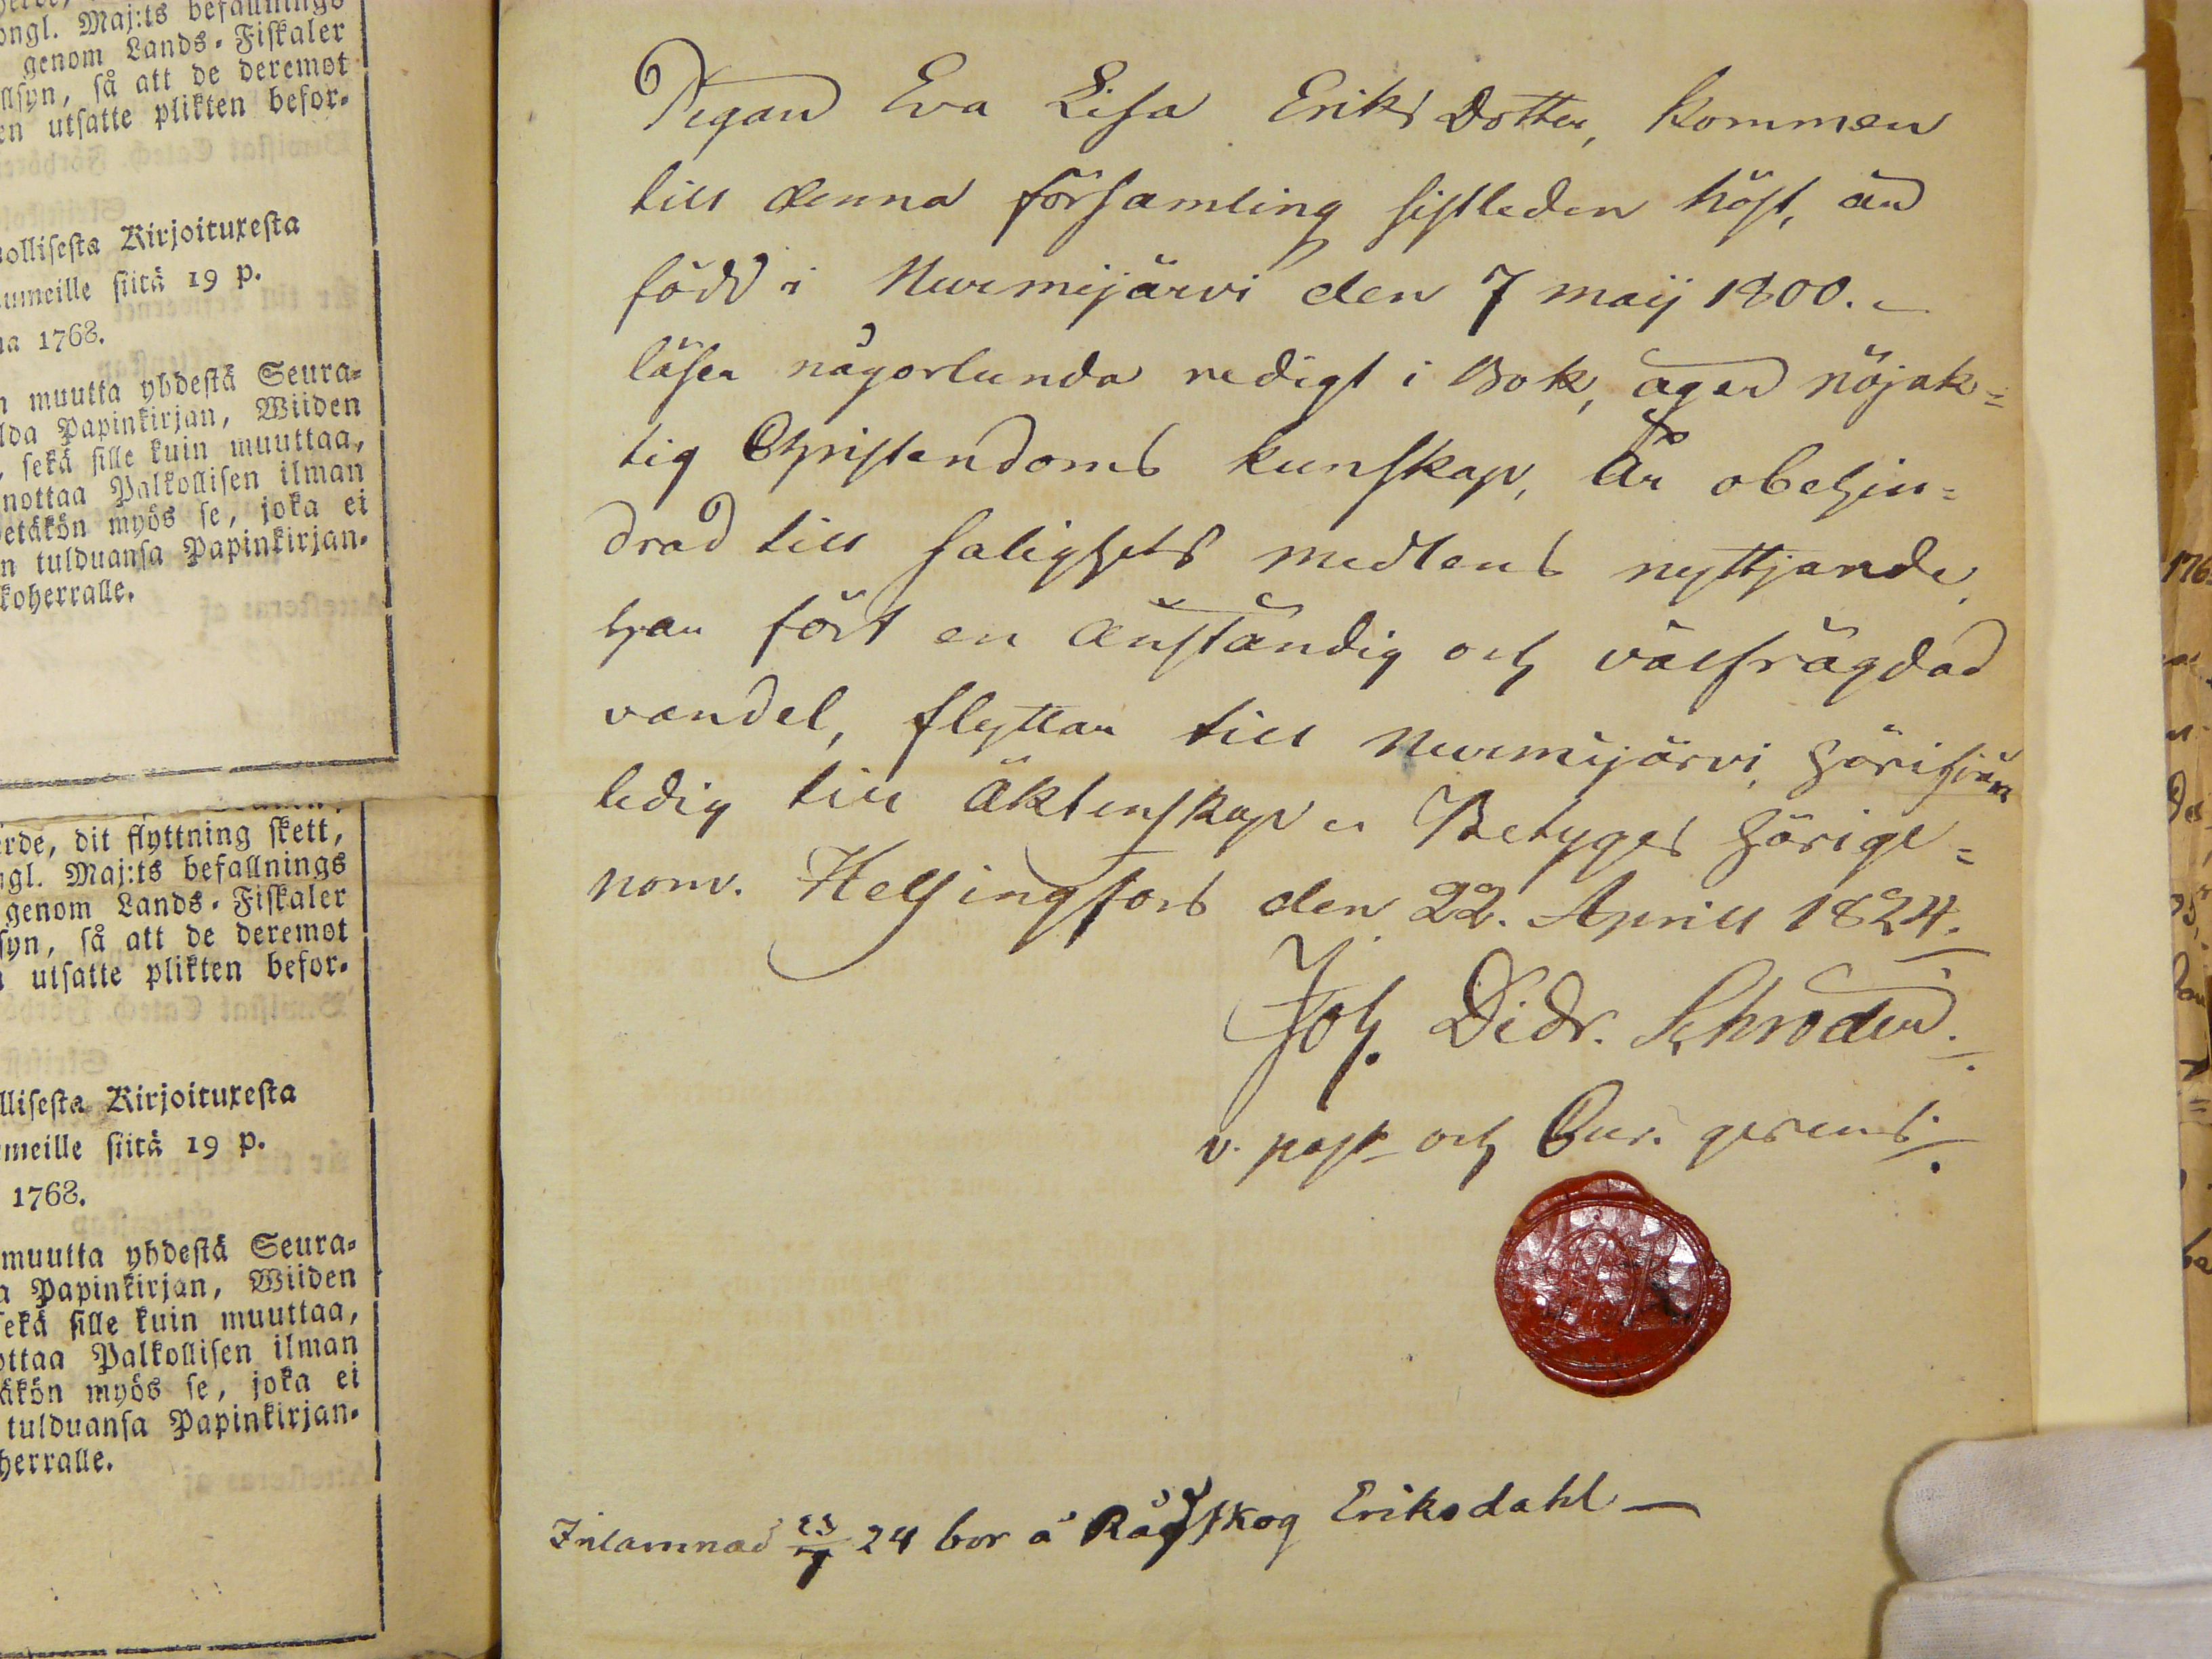 ongl. Maj:ts befallnings
genom Lands-Fiskaler
llsyn, så att de deremot
en utsatte plikten befor-
ollisesta Kirjoituxesta
umeille siitä 19 p.
na 1768.
n muutta yhdestä Seura-
lda Papinkirjan, Wiiden
, sekä sille kuin muuttaa,
nottaa Palkollisen ilman
etäkön myös se, joka ei
n tulduansa Papinkirjan-
koherralle.
erde, dit flyttning skett,
ngl. Maj:ts befallnings
genom Lands-Fiskaler
syn, så att de deremot
utsatte plikten befor-
llisesta Kirjoituxesta
meille siitä 19 p.
1768.
muutta yhdestä Seura-
a Papinkirjan, Wiiden
sekä sille kuin muuttaa,
ottaa Palkollisen ilman
äkön myös se, joka ei
tulduansa Papinkirjan-
herralle.
Pigan Eva Lisa Eriks Dotter, kommen
till denna församling sistleden höst, är
född i Nurmijärvi den 7 maij 1800.
läser någorlunda redigt i Bok, äger nöjak=
tig Christendoms kunskap, Är obehin=
drad till salighets medlens nyttjande,
har fört en anständig och välfrägdad
vandel, flyttar till Nurmijärvi, härifrån
ledig till äktenskap. Betyges härige=
nom. Helsingfors den 22. Aprill 1824.
Joh. Didr. Schroder.
v. past. och Cur. gerens.
Inlämnad 24 bor å Rågskog Eriksdahl